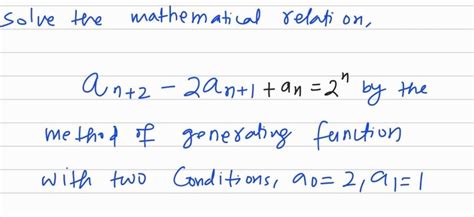 Solve the mathematical relation,
a_{n+2} - 2a_{n+1} + a_n = 2^n by the
method of generating function
with two Conditions, a_0 = 2, a_1 = 1